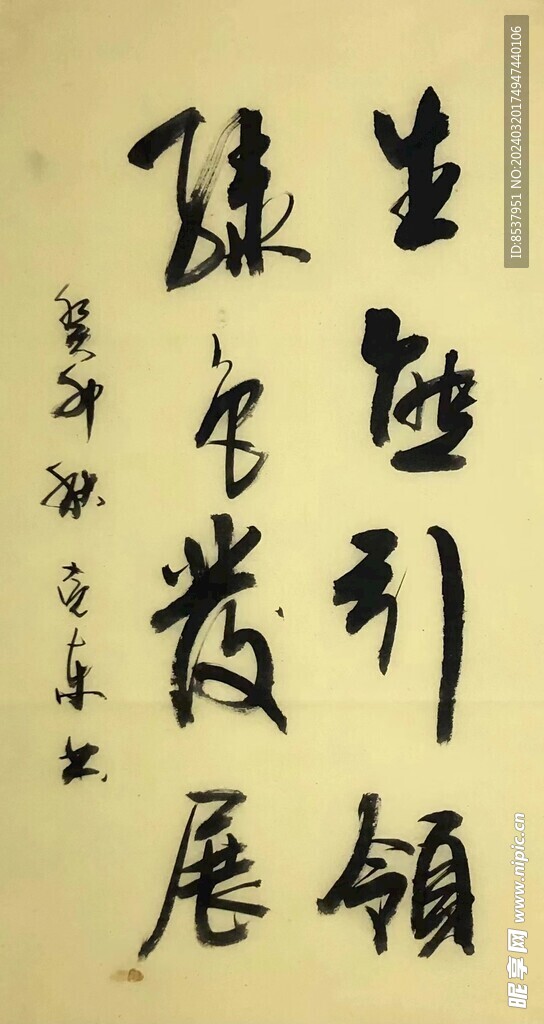 生態引領
緑色發展
癸卯秋 克東书
ID:8537951 NO:20240320174947440106
昵享网 www.nipic.cn